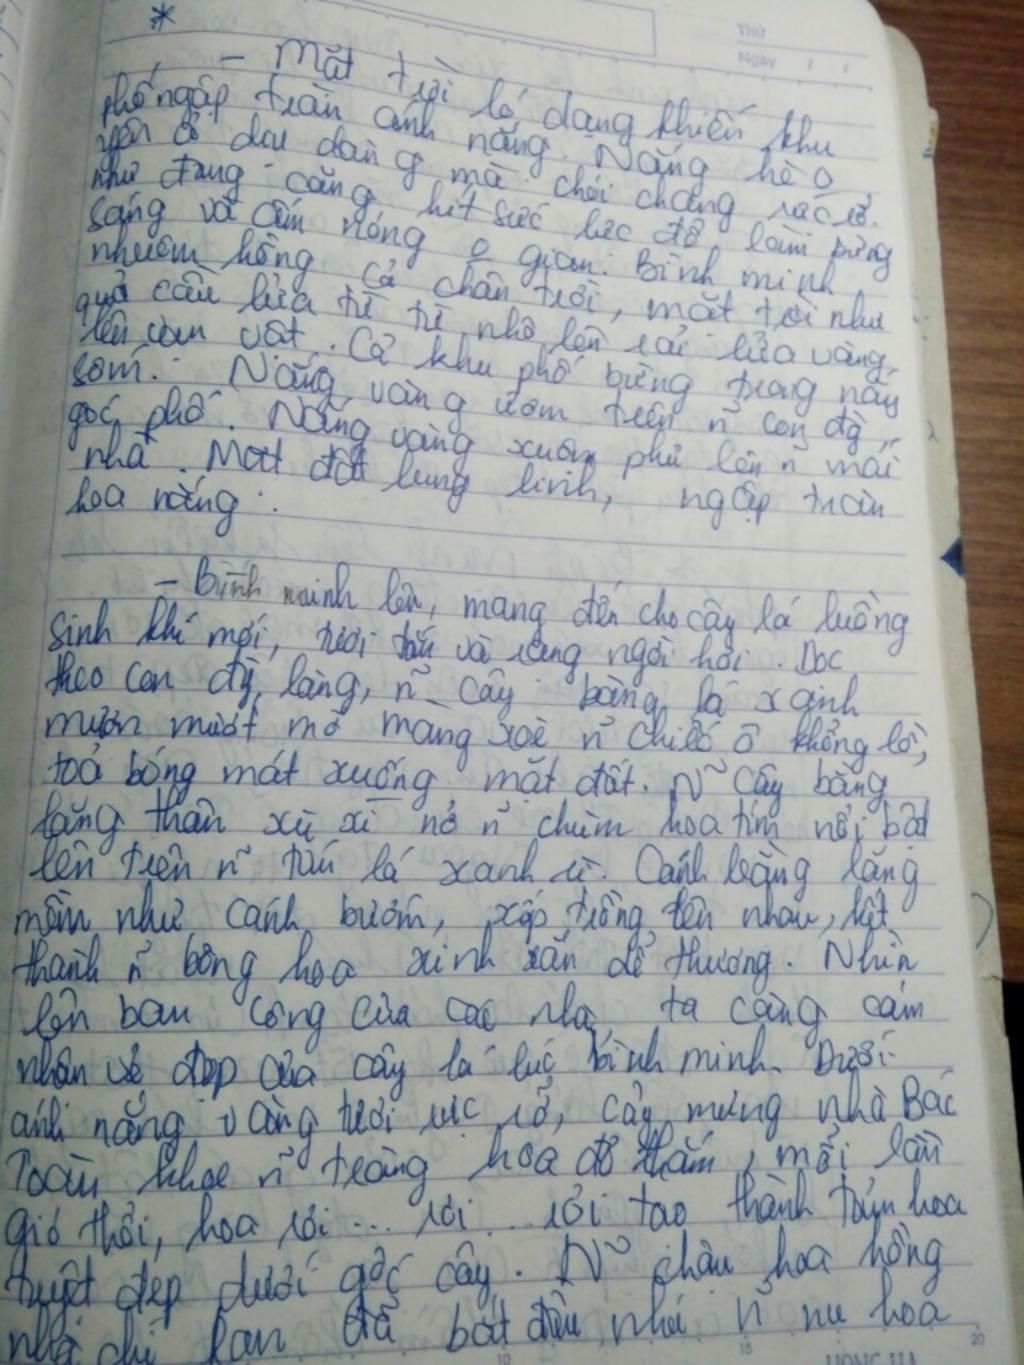 *
Thứ
Ngày / /
- Mặt trời ló dạng khiến khu
phố ngập tràn ánh nắng. Nắng hè o
dịu dàng mà chói chang rực rỡ.
như đang căng hết sức lực để làm bừng
sáng và ấm nóng o gian. Bình minh
nhuốm hồng cả chân trời, mặt trời như
quả cầu lửa từ từ nhô lên rải lửa vàng
lên vạn vật. Cả khu phố bừng trong nắng
sớm. Nắng vàng ươm trên n~ con đg,
góc phố. Nắng vàng xuôm phủ lên n~ mái
nhà. Mặt đất lung linh, ngập tràn
hoa nắng.
- Bình minh lên, mang đến cho cây lá luồng
sinh khí mới, tươi tắn và rạng ngời hơi. Dọc
theo con đg làng, n~ cây bàng lá xanh
mươn mướt mở màng xoè n~ chiếc ô khổng lồ,
toả bóng mát xuống mặt đất. N~ cây bằng
lăng thân xù xì nở n~ chùm hoa tím nổi bật
lên trên n~ tán lá xanh rì. Cánh bằng lăng
mềm như cánh bướm, xếp chồng lên nhau, kết
thành n~ bông hoa xinh xắn dễ thương. Nhìn
lên ban công của các nhà, ta càng cảm
nhận vẻ đẹp của cây lá lúc bình minh. Dưới
ánh nắng vàng tươi rực rỡ, cây mưng nhà Bác
Toàn khoe n~ tràng hoa đỏ thắm, mỗi lần
gió thổi, hoa rơi ... rơi .. rơi tạo thành thảm hoa
tuyệt đẹp dưới gốc cây. N~ chậu hoa hồng
nhà chị Lan đã bắt đầu nhú n~ nụ hoa
10 15 20
HONG HA